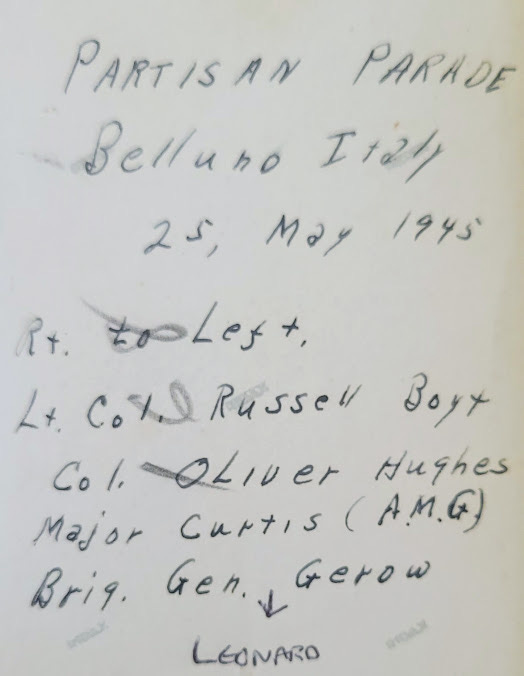 PARTISAN PARADE
Belluno Italy
25, May 1945
Rt. to Left.
Lt. Col. Russell Boyt
Col. OLIVER Hughes
Major Curtis (A.M.G)
Brig. Gen. Gerow
↓
LEONARD